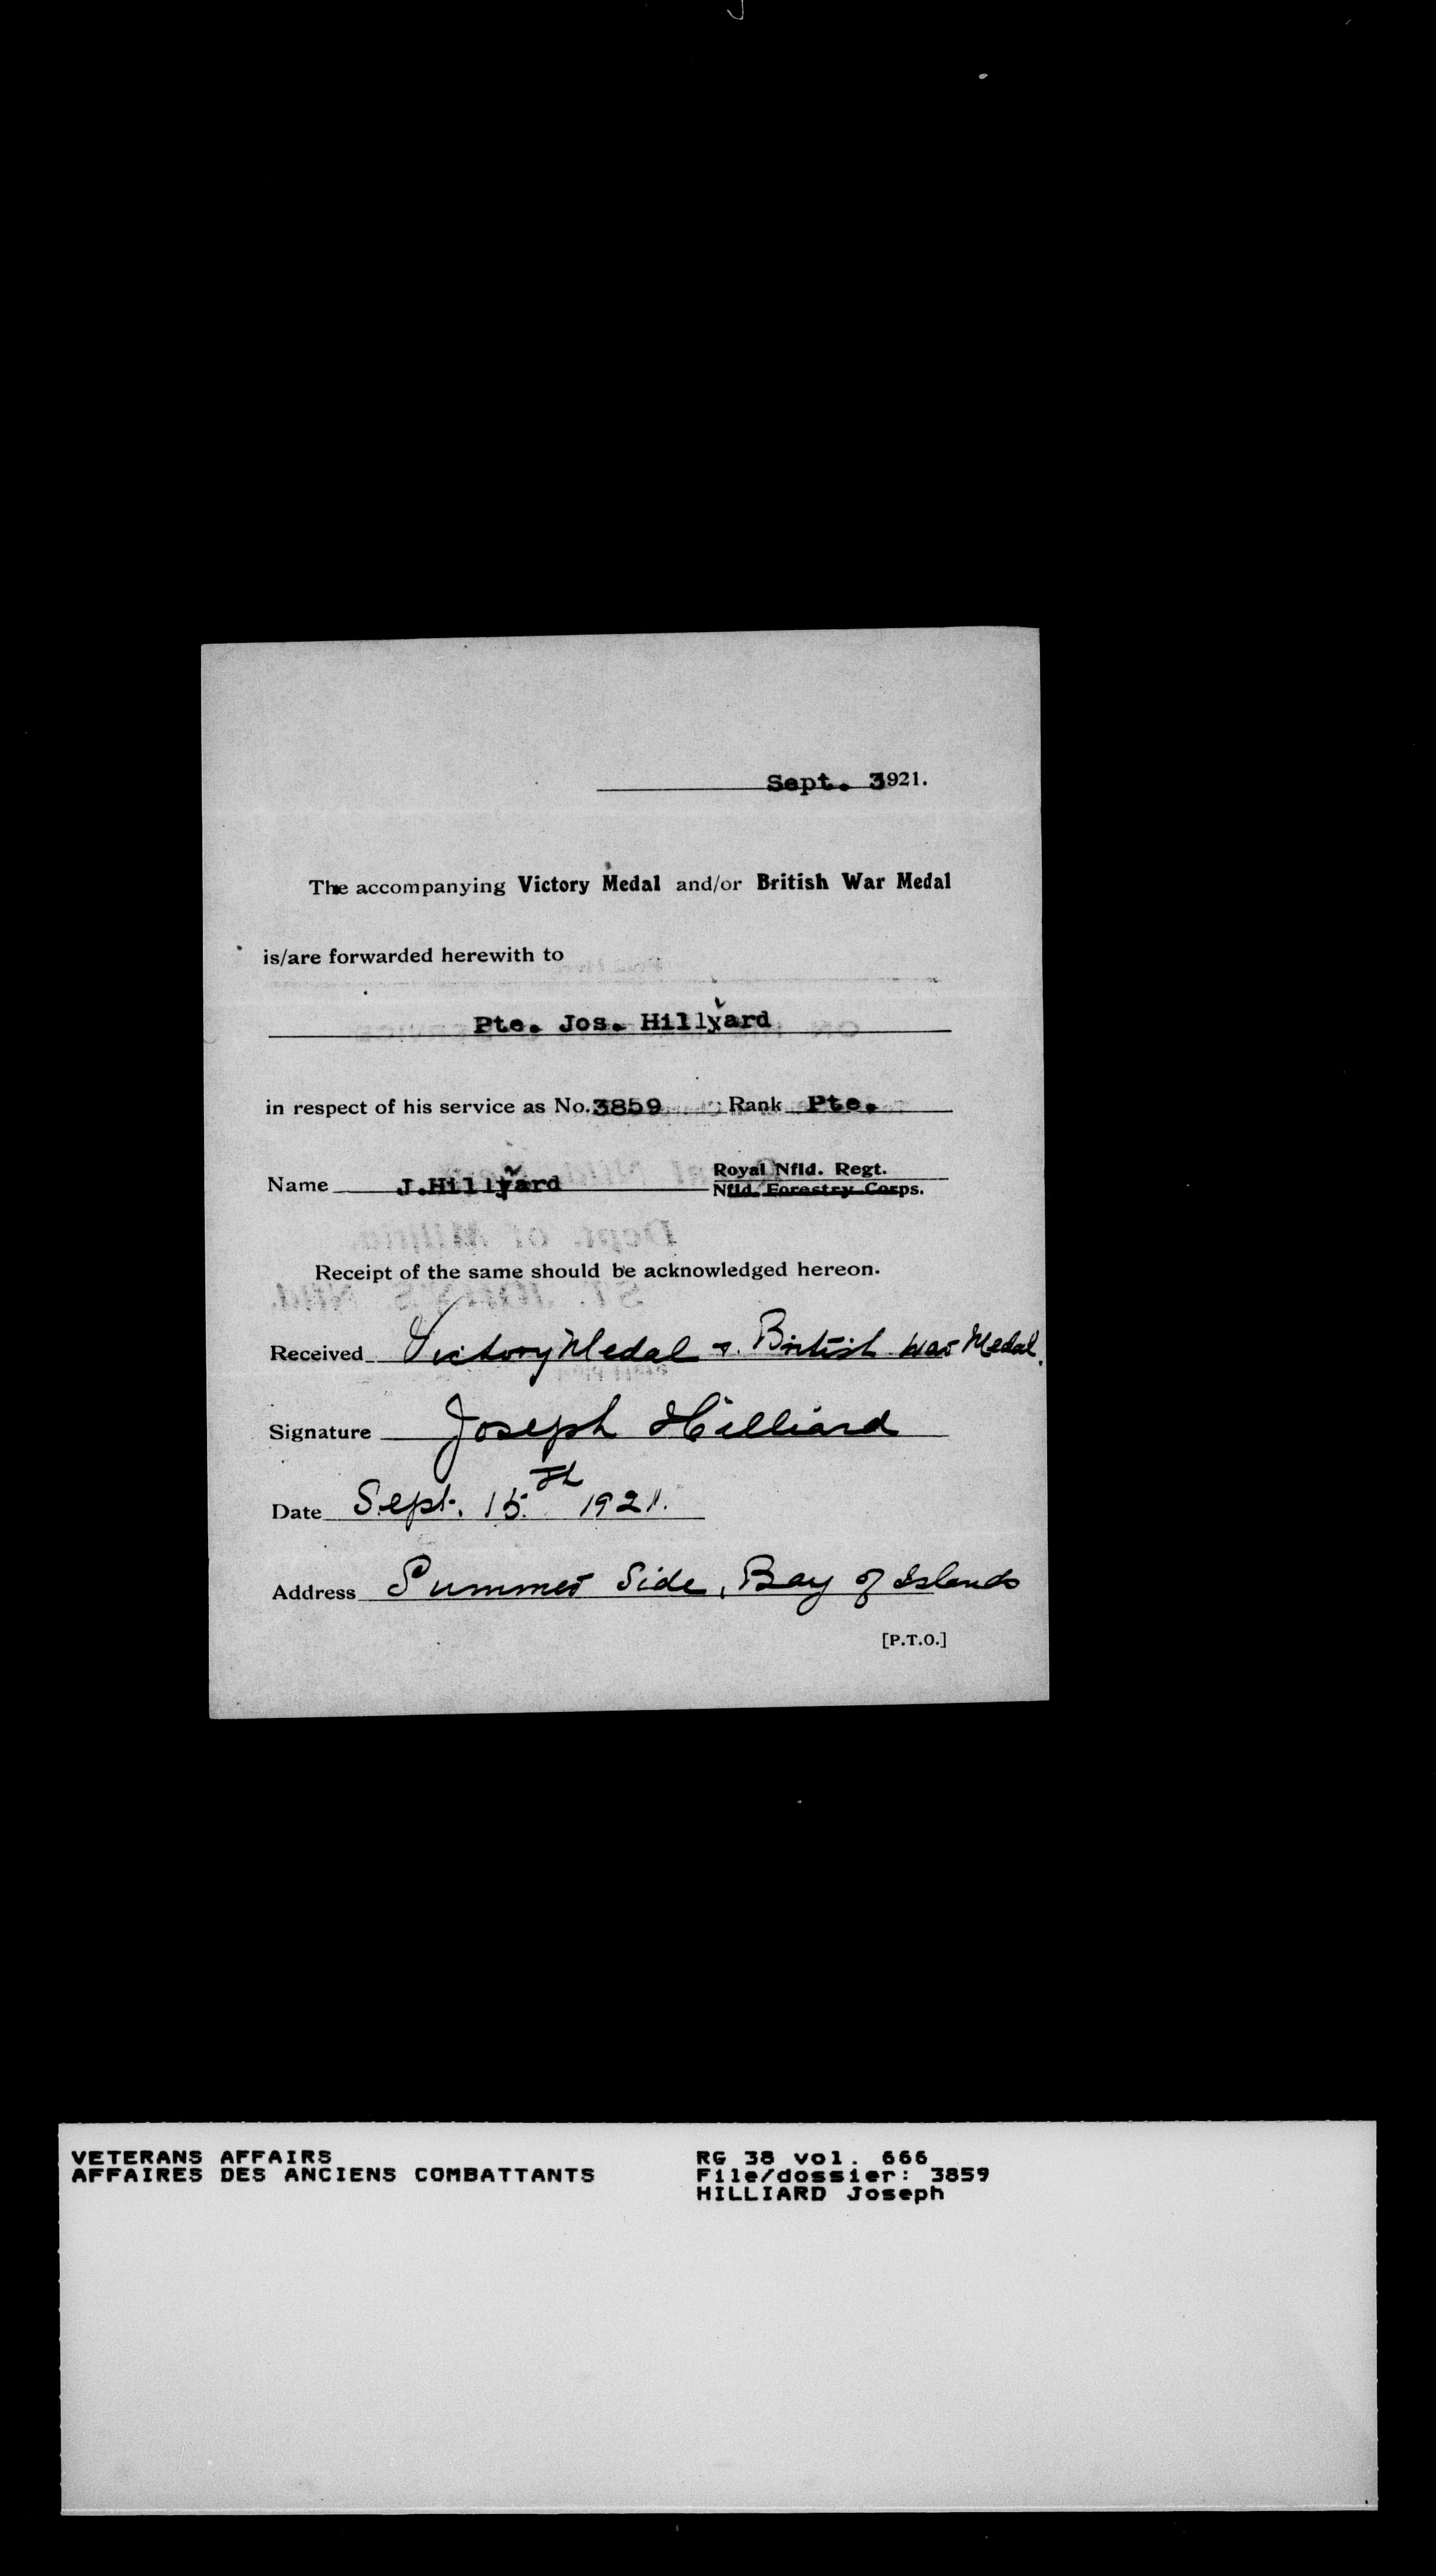 Sept. 3 1921.
The accompanying Victory Medal and/or British War Medal
is/are forwarded herewith to
Pte. Jos. Hillyard
in respect of his service as No. 3859 Rank Pte.
Name J. Hillyard Royal Nfld. Regt.
Nfld. Forestry Corps.
Receipt of the same should be acknowledged hereon.
Received Victory Medal & British War Medal.
Signature Joseph Hilliard
Date Sept. 15th 1921.
Address Summer Side, Bay of Islands
[P.T.O.]
VETERANS AFFAIRS
AFFAIRES DES ANCIENS COMBATTANTS
RG 38 vol. 666
File/dossier: 3859
HILLIARD Joseph